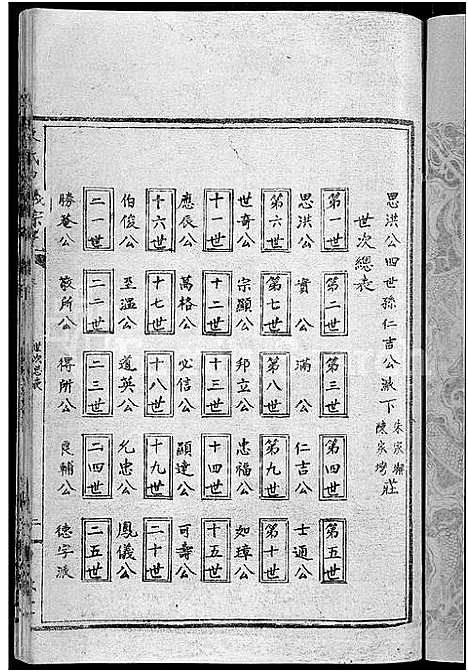 思洪公四世孫仁吉公派下朱家塘陳家灣莊
世次總表
第一世 第二世 第三世 第四世 第五世
思洪公 資公 滿公 仁吉公 士通公
第六世 第七世 第八世 第九世 第十世
世奇公 宗顯公 邦立公 忠福公 如璋公
十一世 十二世 十三世 十四世 十五世
應辰公 萬格公 必信公 顯達公 可壽公
十六世 十七世 十八世 十九世 二十世
伯俊公 至溫公 道英公 允忠公 鳳儀公
二一世 二二世 二三世 二四世 二五世
勝菴公 敬所公 得所公 良輔公 德字派
世次總表